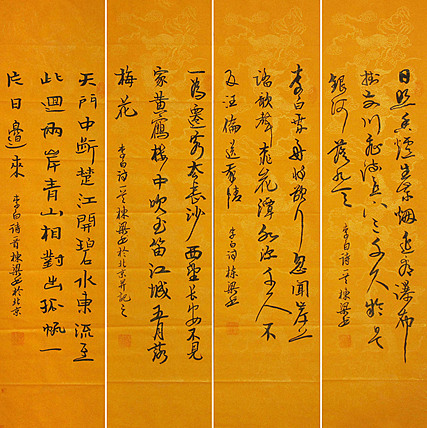 日照香爐生紫烟遥看瀑布
掛前川飛流直下三千尺疑是
銀河落九天
李白诗一首棟梁书
李白乘舟將欲行忽聞岸上
踏歌聲桃花潭水深千尺不
及汪倫送我情
李白诗棟梁书
一為遷客去長沙西望長安不見
家黄鶴樓中吹玉笛江城五月落
梅花
李白诗一首棟梁书於北京并記之
天門中断楚江開碧水東流至
此迴兩岸青山相對出孤帆一
片日邊來
李白诗首棟梁书於北京